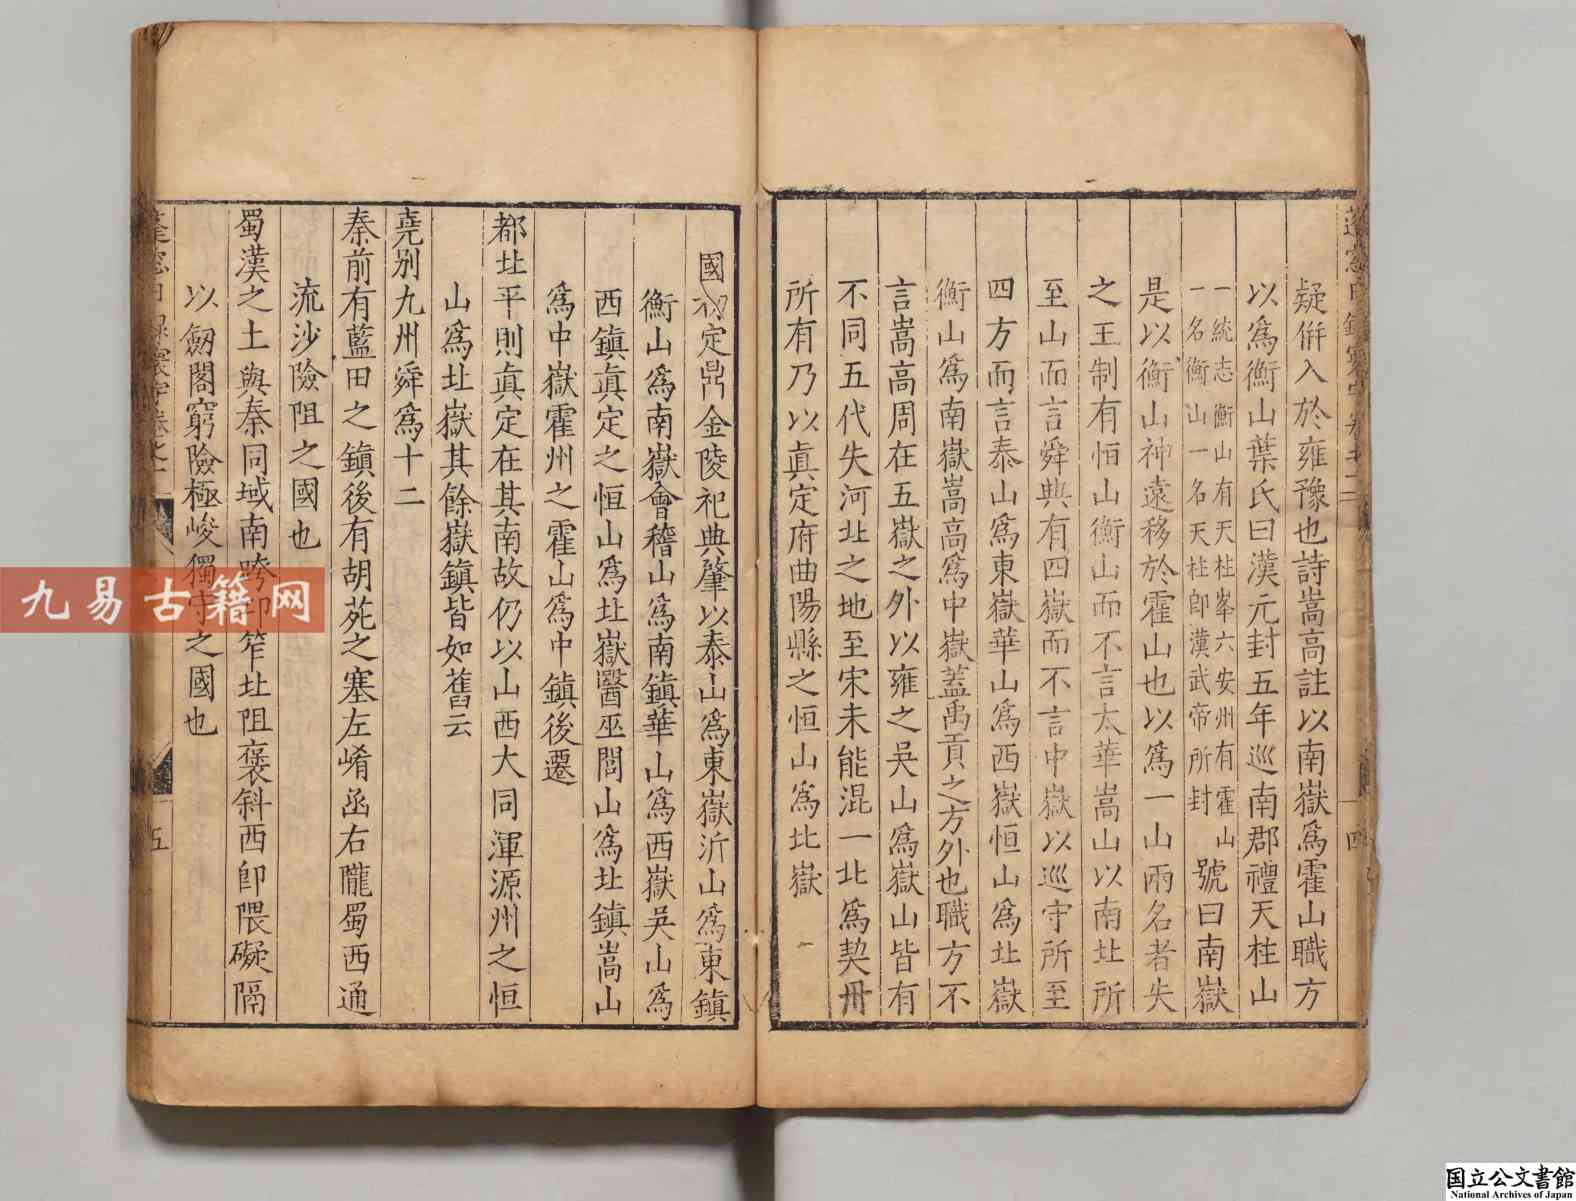 疑倂入於雍豫也詩嵩高註以南嶽爲霍山職方
以爲衡山葉氏曰漢元封五年巡南郡禮天柱山
一統志衡山有天柱峯六安州有霍山
一名衡山一名天柱卽漢武帝所封
號曰南嶽
是以衡山神遠移於霍山也以爲一山兩名者失
之王制有恒山衡山而不言太華嵩山以南北所
至山而言舜典有四嶽而不言中嶽以巡守所至
四方而言泰山爲東嶽華山爲西嶽恒山爲北嶽
衡山爲南嶽嵩高爲中嶽蓋禹貢之方外也職方不
言嵩高周在五嶽之外以雍之吳山爲嶽山皆有
不同五代失河北之地至宋未能混一北爲契丹
所有乃以眞定府曲陽縣之恒山爲北嶽
四
國初定鼎金陵祀典肇以泰山爲東嶽沂山爲東鎭
衡山爲南嶽會稽山爲南鎭華山爲西嶽吳山爲
西鎭眞定之恒山爲北嶽醫巫閭山爲北鎭嵩山
爲中嶽霍州之霍山爲中鎭後遷
都北平則眞定在其南故仍以山西大同渾源州之恒
山爲北嶽其餘嶽鎭皆如舊云
堯別九州舜爲十二
秦前有藍田之鎭後有胡苑之塞左崤函右隴蜀西通
流沙險阻之國也
蜀漢之土與秦同域南跨邛笮北阻褒斜西卽隈礙隔
以劒閣窮險極峻獨守之國也
五
九易古籍网
国立公文書館
National Archives of Japan